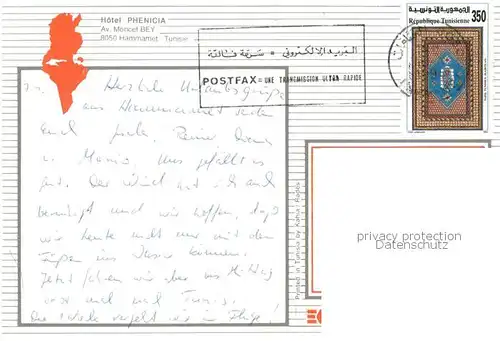 Hôtel PHENICIA
Av. Moncef BEY
8050 Hammamet Tunisie
البريد الإلكتروني * سرعة فائقة
POSTFAX = UNE TRANSMISSION ULTRA RAPIDE
الجمهورية التونسية
République Tunisienne
350
Herzliche Urlaubsgrüße
aus Hammamet
Euch
u. Uns gefällt es
gut. Der Wind hat sich auch
beruhigt und wir hoffen, daß
wir heute nicht nur mit den
Füßen ins Wasser können.
Jetzt fahren wir aber bis Mittag
erst mal nach Tunis.
Die Woche vergeht wie im Fluge!
Printed in Tunisia by Kahia : Radès
privacy protection
Datenschutz